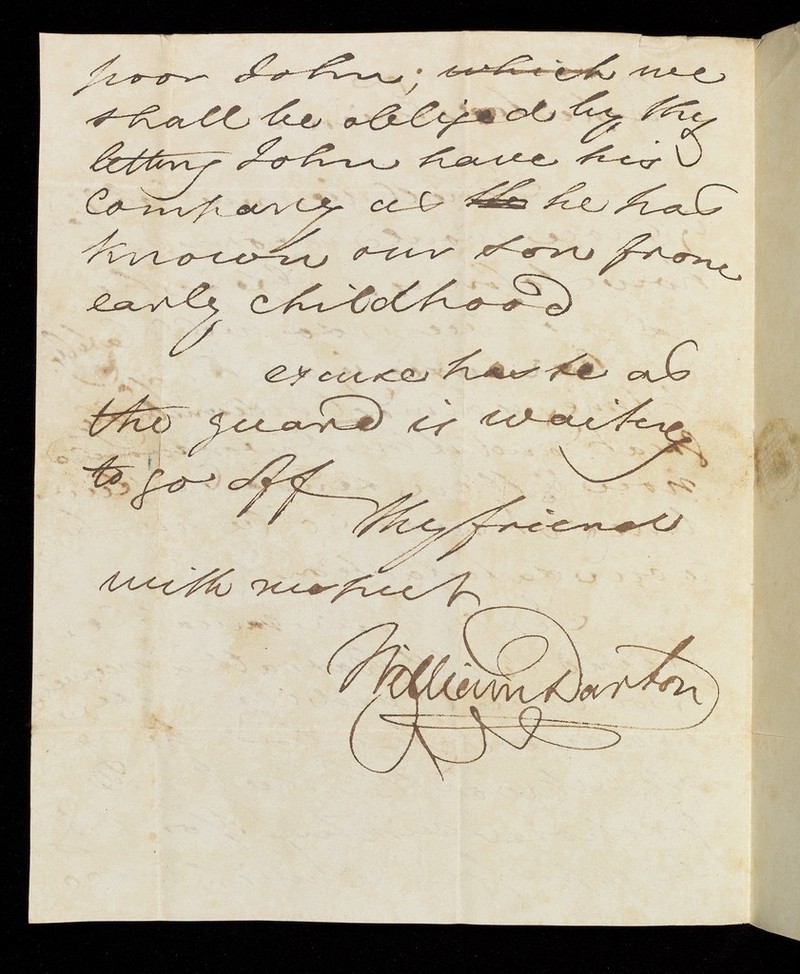 poor John; which we
shall be obliged by thy
letting John have his
Company as the he has
known our son from
early childhood
excuse haste as
the guard is waiting
to go off
thy friend
with respect
William Darton